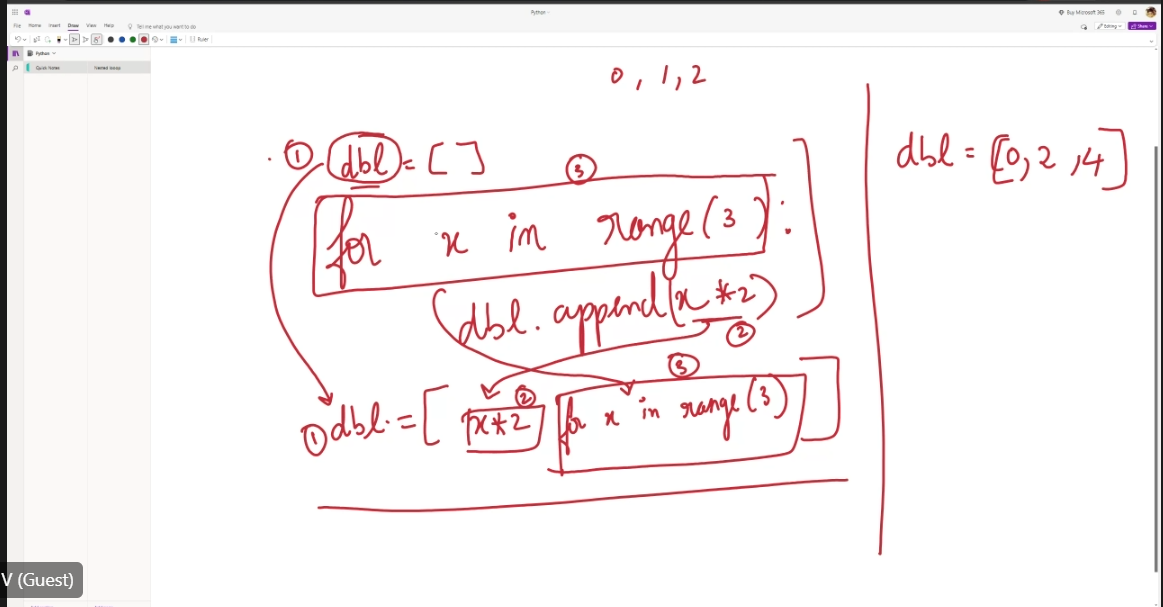 Python
Buy Microsoft 365
File Home Insert Draw View Help Tell me what you want to do
Editing Share
Ruler
Python
Quick Notes Nested loops
0, 1, 2
① dbl = [ ]
③
for x in range(3):
dbl.append(x*2)
②
③
②
① dbl = [ x*2 for x in range(3) ]
dbl = [0, 2, 4]
V (Guest)